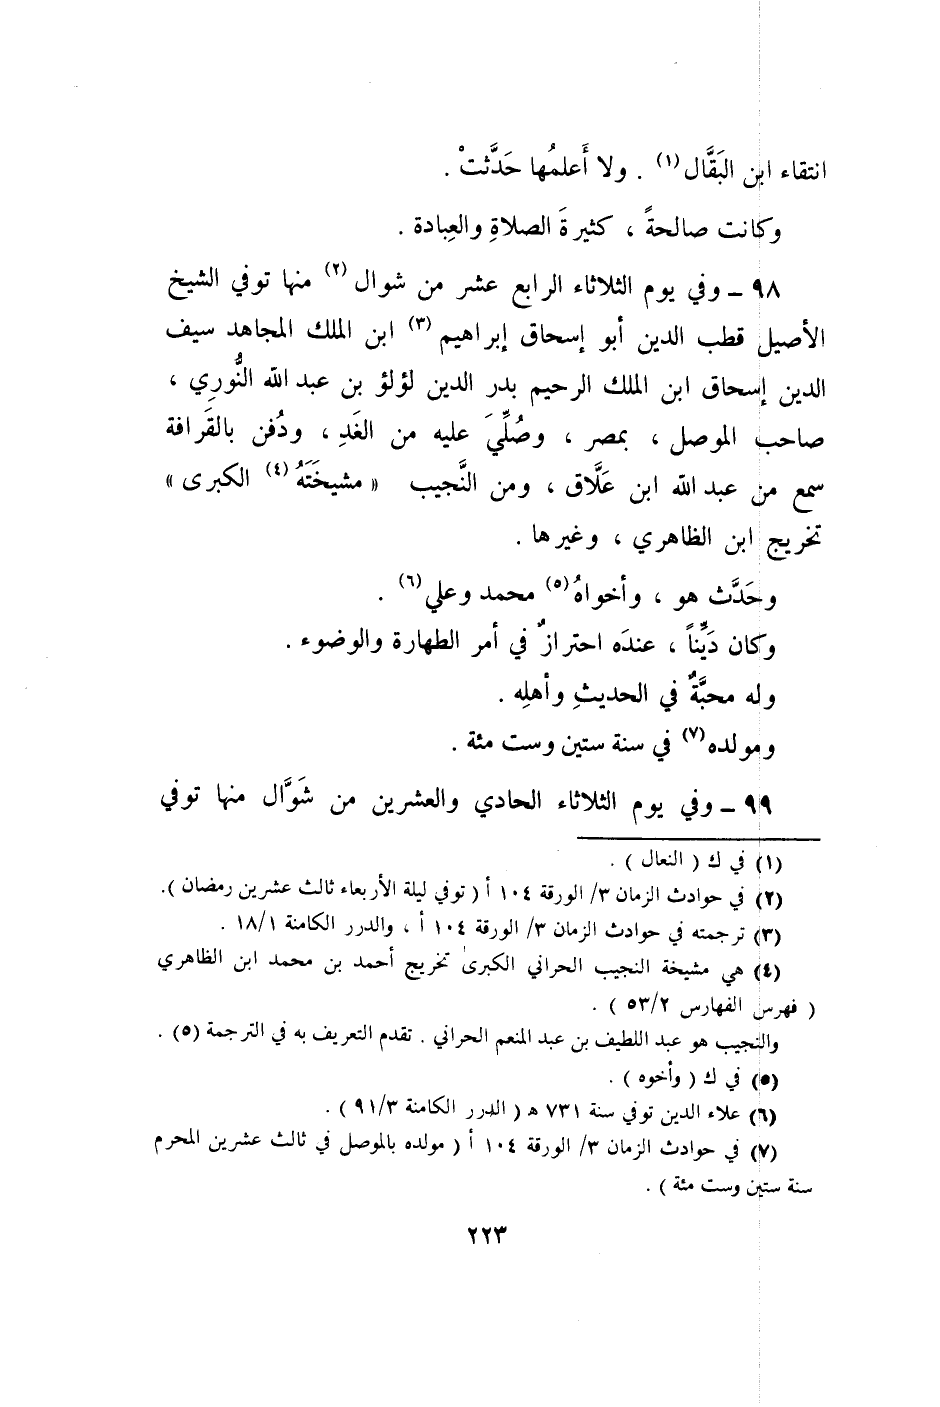 انتقاء ابن البَقَّال (١) . ولا أَعلمُها حَدَّثتْ .
وكانت صالحةً ، كثيرةَ الصلاةِ والعِبادة .
٩٨ ـ وفي يوم الثلاثاء الرابع عشر من شوال (٢) منها توفي الشيخ
الأصيل قطب الدين أبو إسحاق إبراهيم (٣) ابن الملك المجاهد سيف
الدين إسحاق ابن الملك الرحيم بدر الدين لؤلؤ بن عبد الله النُّورِي ،
صاحب الموصل ، بمصر ، وصُلِّيَ عليه من الغَدِ ، ودُفن بالقَرافة
سمع من عبد الله ابن عَلَّاق ، ومن النَّجيب « مشيخَتَهُ (٤) الكبرى »
تخريج ابن الظاهري ، وغيرها .
وحَدَّث هو ، وأخواهُ (٥) محمد وعلي (٦) .
وكان دَيِّناً ، عندَه احترازٌ في أمر الطهارة والوضوء .
وله محبَّةٌ في الحديثِ وأهلِه .
ومولده (٧) في سنة ستين وست مئة .
٩٩ ـ وفي يوم الثلاثاء الحادي والعشرين من شَوَّال منها توفي
(١) في ك ( النعال ) .
(٢) في حوادث الزمان ٣/ الورقة ١٠٤ أ ( توفي ليلة الأربعاء ثالث عشرين رمضان ).
(٣) ترجمته في حوادث الزمان ٣/ الورقة ١٠٤ أ ، والدرر الكامنة ١٨/١ .
(٤) هي مشيخة النجيب الحراني الكبرى تخريج أحمد بن محمد ابن الظاهري
( فهرس الفهارس ٥٣/٢ ) .
والنجيب هو عبد اللطيف بن عبد المنعم الحراني . تقدم التعريف به في الترجمة (٥) .
(٥) في ك ( وأخوه ) .
(٦) علاء الدين توفي سنة ٧٣١ ﻫ ( الدرر الكامنة ٩١/٣ ) .
(٧) في حوادث الزمان ٣/ الورقة ١٠٤ أ ( مولده بالموصل في ثالث عشرين المحرم
سنة ستين وست مئة ) .
٢٢٣